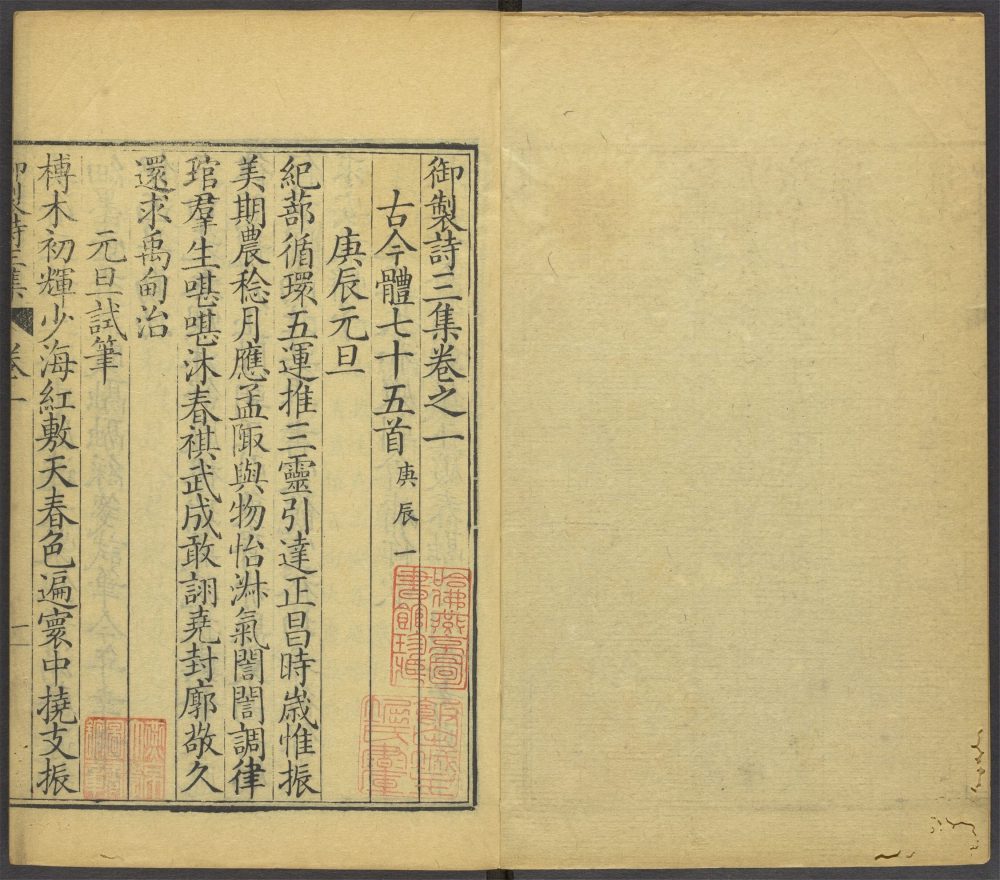 御製詩三集卷之一
古今體七十五首 庚辰一
庚辰元旦
紀蔀循環五運推三靈引達正昌時嵗惟振
美期農稔月應孟陬與物怡淋氣誾誾調律
琯羣生喈喈沐春祺武成敢詡堯封廓敬久
還求禹甸治
元旦試筆
榑木初輝少海紅敷天春色遍寰中撓支振
御製詩三集
卷一
一
哈佛燕京圖書館珍藏